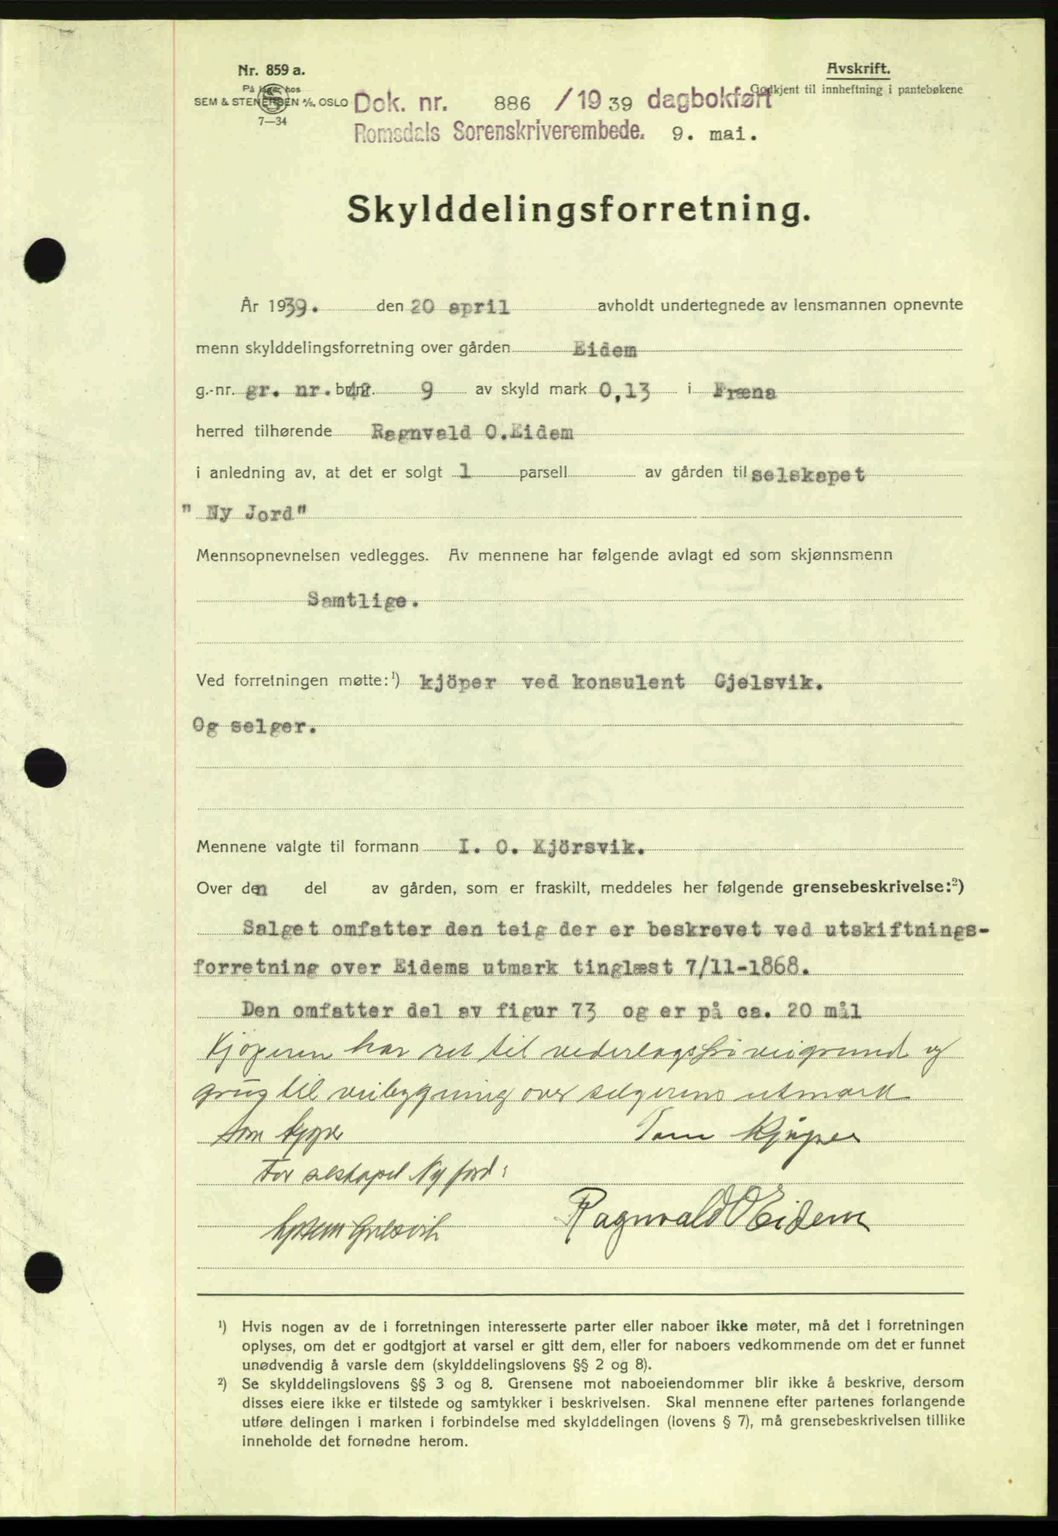 Nr. 859 a.
På lager hos
SEM & STENERSEN A/S, OSLO
7—34
Avskrift.
Godkjent til innheftning i pantebøkene
Dok. nr. 886 /19 39 dagbokført
Romsdals Sorenskriverembede. 9. mai.
Skylddelingsforretning.
År 1939. den 20 april avholdt undertegnede av lensmannen opnevnte
menn skylddelingsforretning over gården Eidem
g.-nr. gr. nr. br.nr. 9 av skyld mark 0,13 i Fræna
herred tilhørende Ragnvald O.Eidem
i anledning av, at det er solgt 1 parsell av gården til selskapet
" Ny Jord"
Mennsopnevnelsen vedlegges. Av mennene har følgende avlagt ed som skjønnsmenn
Samtlige.
Ved forretningen møtte:¹) kjöper ved konsulent Gjelsvik.
Og selger.
Mennene valgte til formann I. O. Kjörsvik.
Over den del av gården, som er fraskilt, meddeles her følgende grensebeskrivelse:²)
Salget omfatter den teig der er beskrevet ved utskiftnings-
forretning over Eidems utmark tinglæst 7/11-1868.
Den omfatter del av figur 73 og er på ca. 20 mål
Kjöperen har ret til vederlagsfri veigrund og
grus til veibygging over selgerens utmark
Som kjøper Som
For selskapet Ny Jord:
Ragnvald O Eidem
¹) Hvis nogen av de i forretningen interesserte parter eller naboer ikke møter, må det i forretningen
oplyses, om det er godtgjort at varsel er gitt dem, eller for naboers vedkommende om det er funnet
unødvendig å varsle dem (skylddelingslovens §§ 2 og 8).
²) Se skylddelingslovens §§ 3 og 8. Grensene mot naboeiendommer blir ikke å beskrive, dersom
disses eiere ikke er tilstede og samtykker i beskrivelsen. Skal mennene efter partenes forlangende
utføre delingen i marken i forbindelse med skylddelingen (lovens § 7), må grensebeskrivelsen tillike
inneholde det fornødne herom.